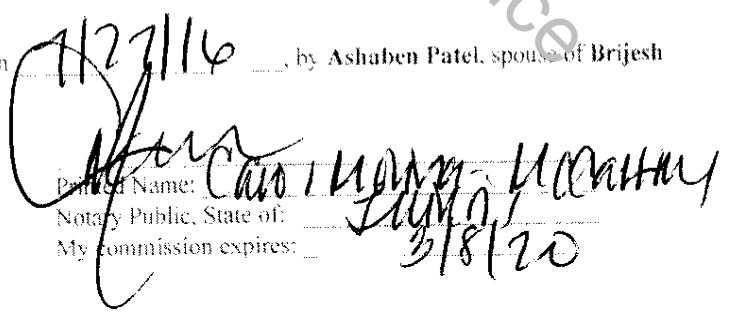 n 7/27/16, by Ashaben Patel, spouse of Brijesh
Printed Name: Carol McCarthy
Notary Public, State of: Illinois
My commission expires: 3/8/20